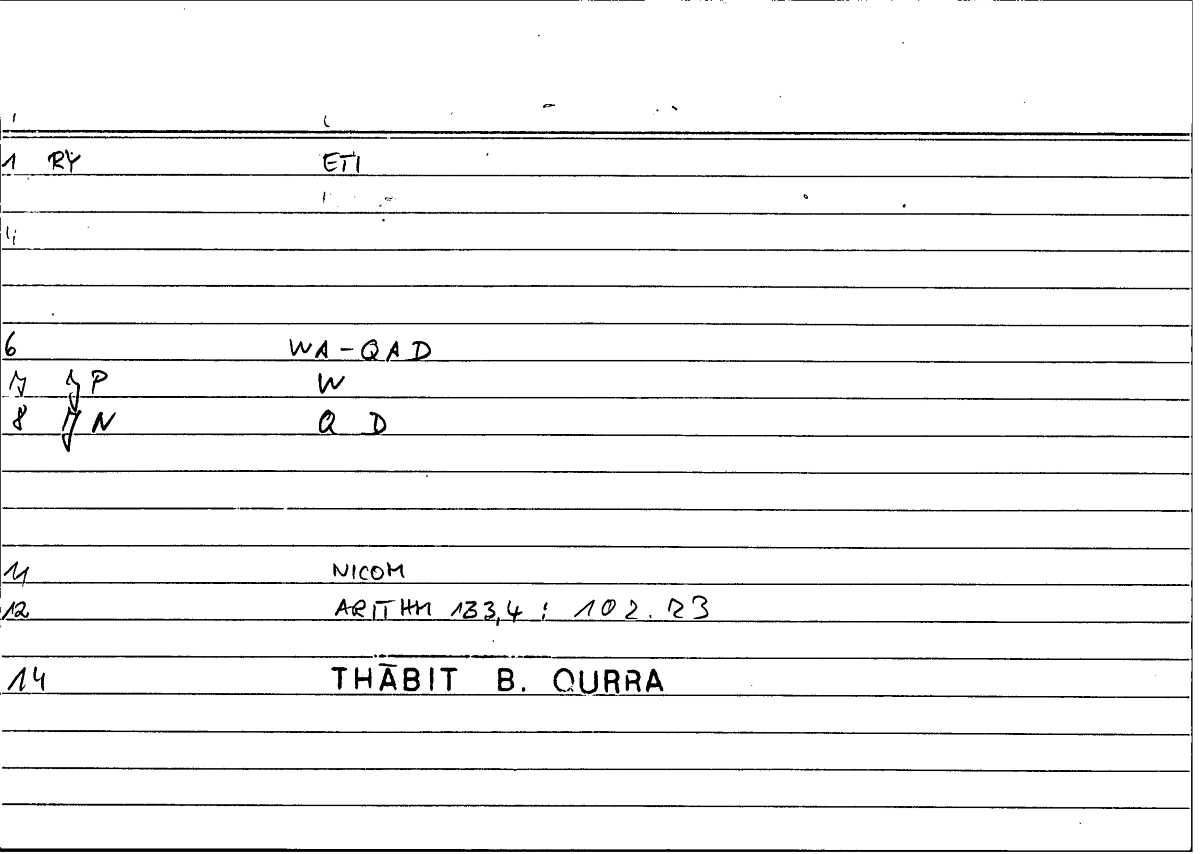 1 RY ETI
4
6 WA-QAD
7 JP W
8 JN Q D
11 NICOM
12 ARITHM 133,4 : 102.23
14 THĀBIT B. QURRA